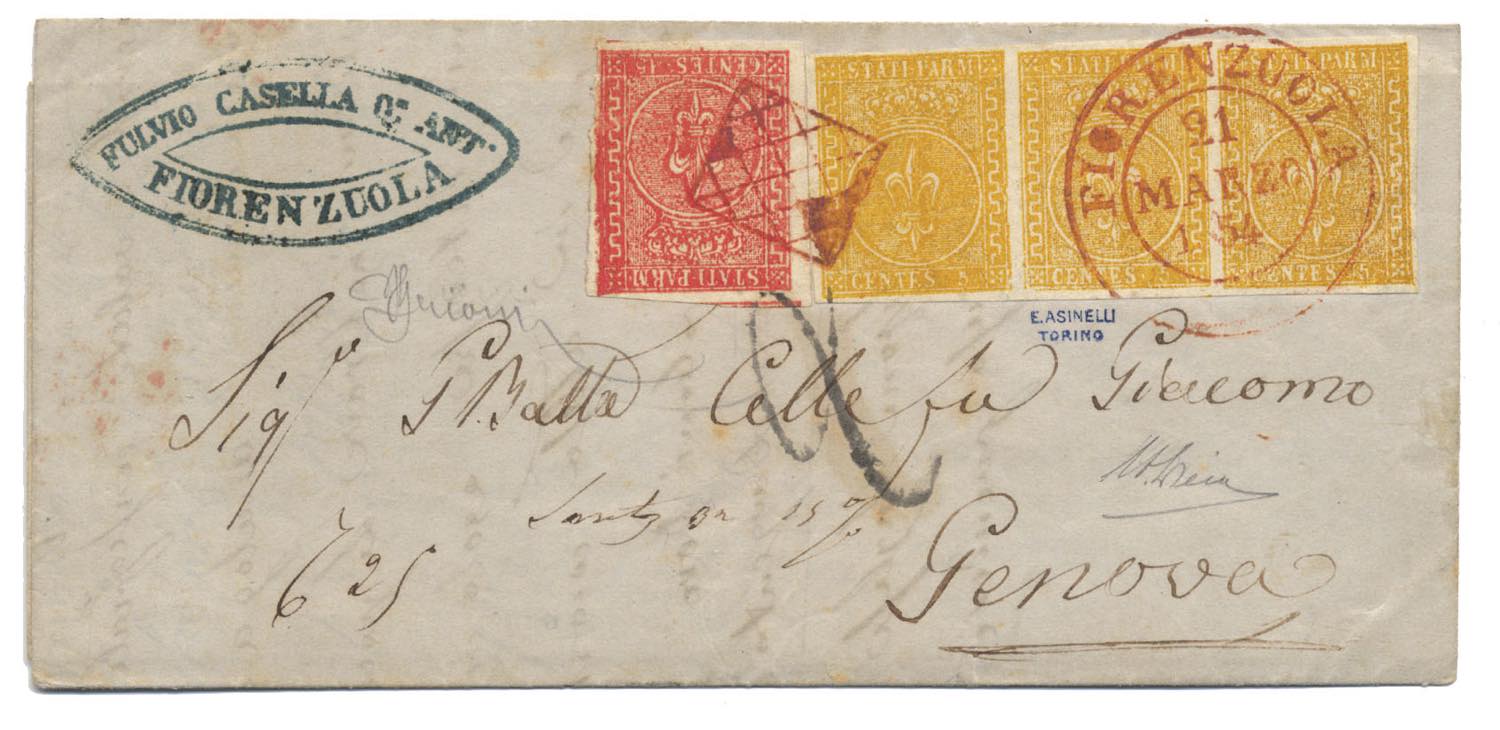 FULVIO CASELLA Qm ANTo
FIORENZUOLA
CENTES. 15
STATI PARM
STATI PARM
CENTES 5
STATI PARM
CENTES. 5
STATI PARM
CENTES. 5.
FIORENZUOLA
21
MARZO
1 54
E. ASINELLI
TORINO
Sigr G Batta Celle fu Giacomo
15
625
Genova